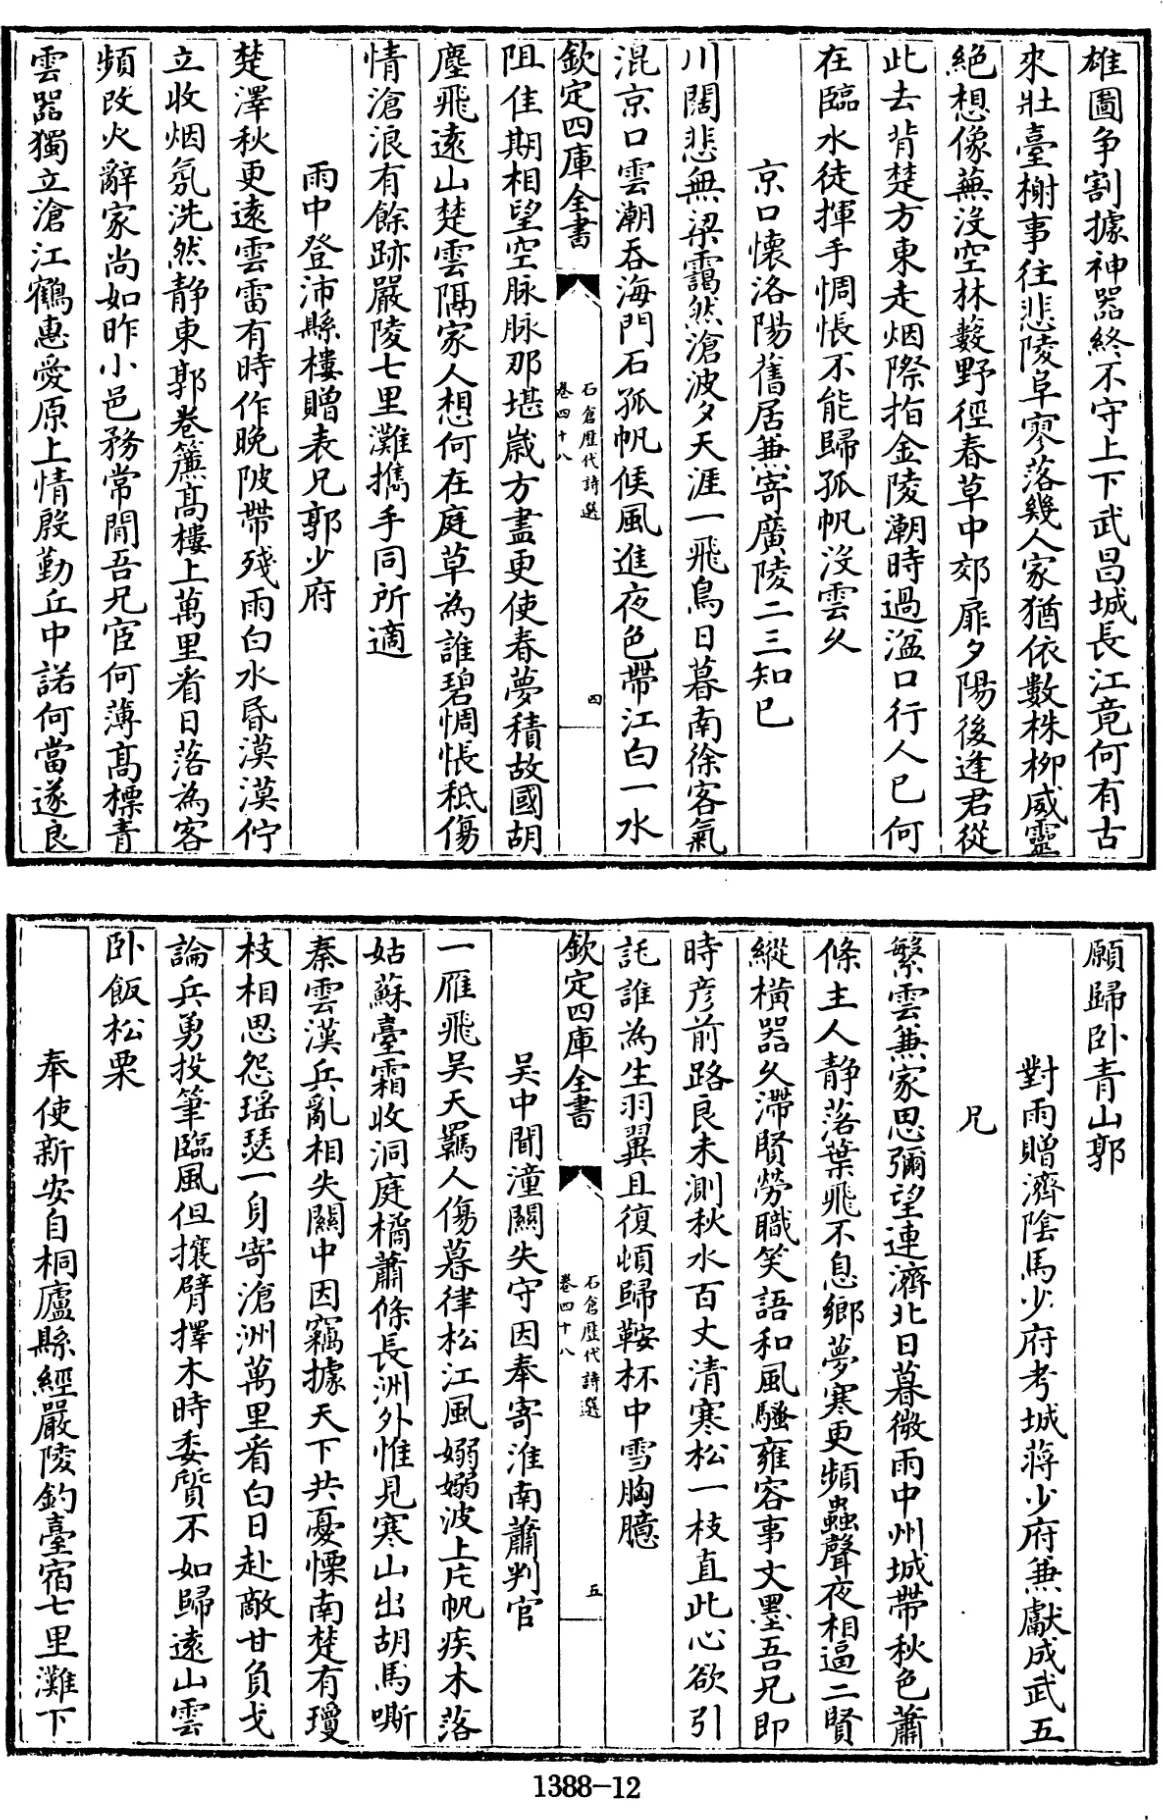 雄圖争割據神器終不守上下武昌城長江竟何有古
來壯臺榭事往悲陵阜寥落幾人家猶依數株柳威靈
絶想像蕪沒空林藪野徑春草中郊扉夕陽後逢君從
此去背楚方東走烟際指金陵潮時過湓口行人已何
在臨水徒揮手惆悵不能歸孤帆沒雲乆
京口懷洛陽舊居兼寄廣陵二三知己
川闊悲無梁靄然滄波夕天涯一飛鳥日暮南徐客氣
混京口雲潮吞海門石孤帆候風進夜色帶江白一水
欽定四庫全書
石倉歷代詩選
卷四十八
四
阻佳期相望空脉脉那堪歳方盡更使春夢積故國胡
塵飛逺山楚雲隔家人想何在庭草為誰碧惆悵秪傷
情滄浪有餘跡嚴陵七里灘攜手同所適
雨中登沛縣樓贈表兄郭少府
楚澤秋更逺雲雷有時作晩陂帶殘雨白水昏漠漠佇
立收烟氛洗然静東郭卷簾髙樓上萬里看日落為客
頻改火辭家尚如昨小邑務常閒吾兄宦何薄髙標青
雲器獨立滄江鶴惠愛原上情殷勤丘中諾何當遂良
願歸卧青山郭
對雨贈濟隂馬少府考城蔣少府兼獻成武五
兄
繁雲兼家思彌望連濟北日暮微雨中州城帶秋色蕭
條主人静落葉飛不息鄉夢寒更頻蟲聲夜相逼二賢
縱橫器乆滯賢勞職笑語和風騷雍容事文墨吾兄即
時彦前路良未測秋水百丈清寒松一枝直此心欲引
託誰為生羽翼且復頓歸鞍杯中雪胸臆
欽定四庫全書
石倉歷代詩選
卷四十八
五
吴中聞潼關失守因奉寄淮南蕭判官
一雁飛吴天羈人傷暮律松江風嫋嫋波上片帆疾木落
姑蘇臺霜收洞庭橘蕭條長洲外惟見寒山出胡馬嘶
秦雲漢兵亂相失關中因竊據天下共憂慄南楚有瓊
枝相思怨瑶瑟一身寄滄洲萬里看白日赴敵甘負戈
論兵勇投筆臨風但攘臂擇木時委質不如歸逺山雲
卧飯松栗
奉使新安自桐廬縣經嚴陵釣臺宿七里灘下
1388-12